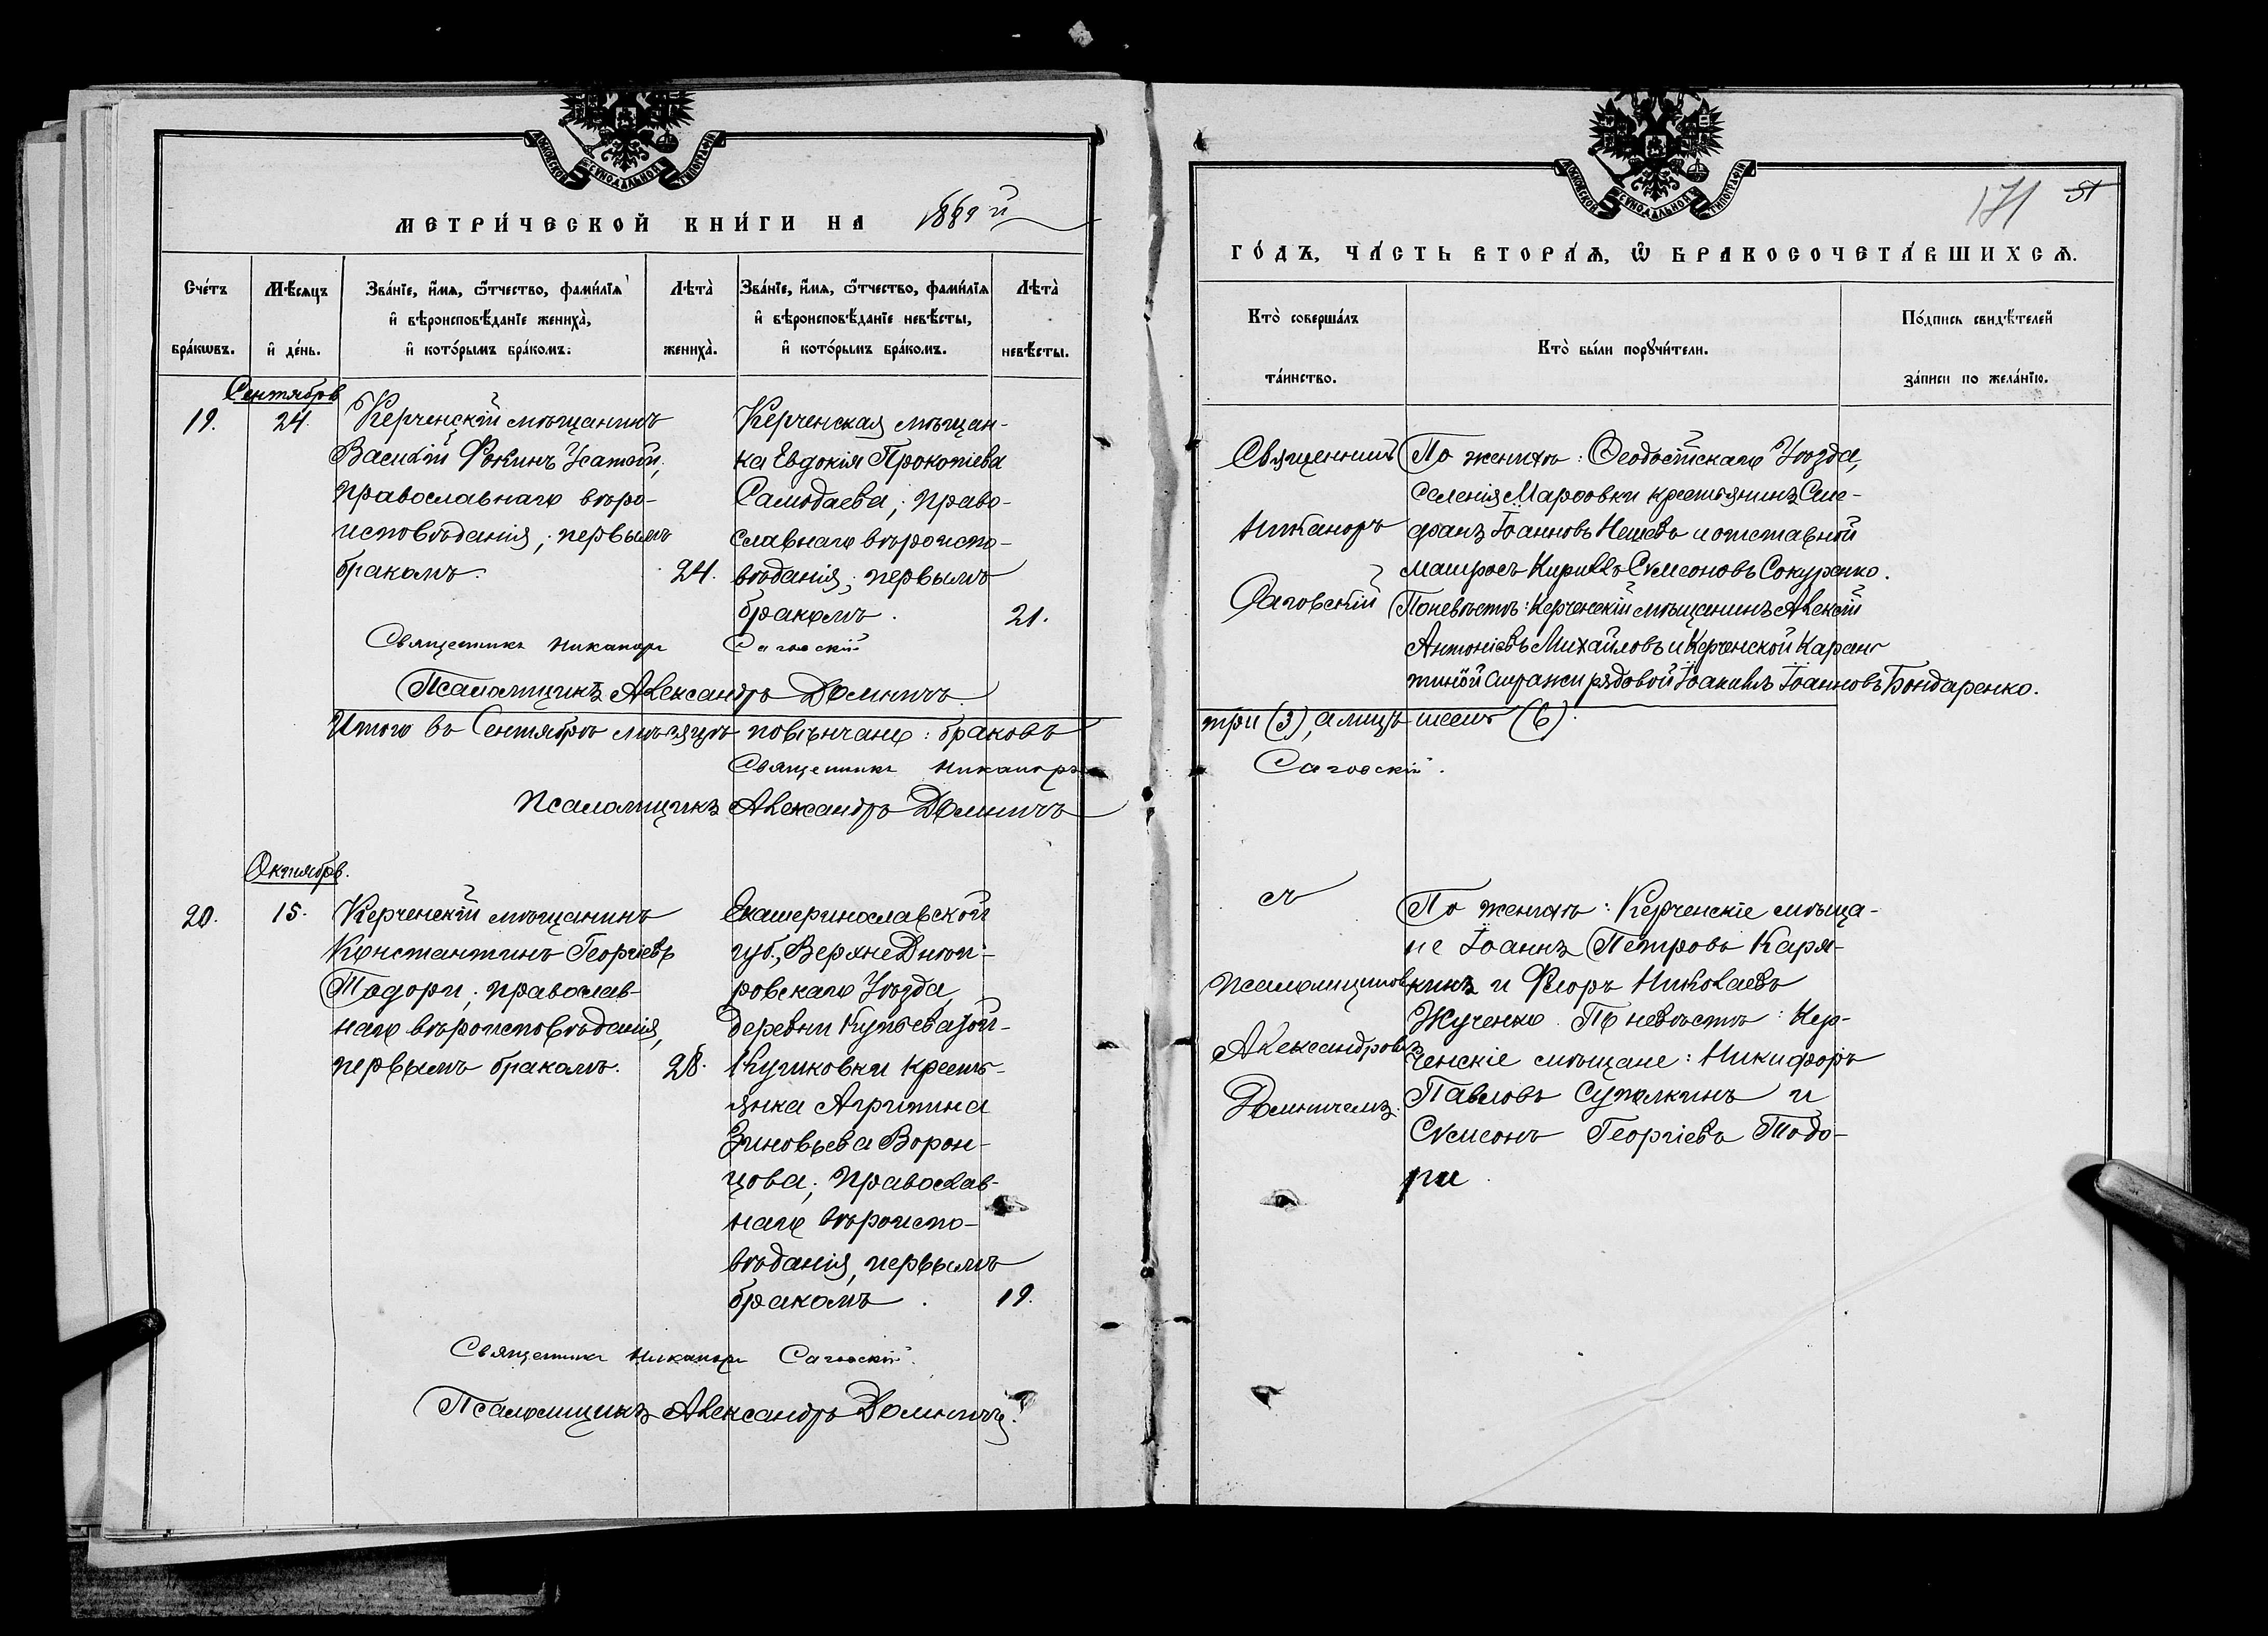 МОСКОВСКОЙ СѴНОДАЛЬНОЙ ТИПОГРАФІИ
МЕТРИ́ЧЕСКОЙ КНИ́ГИ НА 1889 й
Сче́тъ бра́кѡвъ.
Мѣ́сяцъ и҆ де́нь.
Зва́нїе, и҆́мя, ѻ҆́тчество, фами́лїя
и҆ вѣроисповѣ́данїе жениха̀,
и҆ кото́рымъ бра́комъ.
Лѣта̀ жениха̀.
Зва́нїе, и҆́мя, ѻ҆́тчество, фами́лїя
и҆ вѣроисповѣ́данїе невѣ́сты,
и҆ кото́рымъ бра́комъ.
Лѣта̀ невѣ́сты.
Сентябрь
19.
24.
Керченскій мѣщанинъ
Василій Фокинъ Усатый,
православнаго вѣро-
исповѣданія; первымъ
бракомъ.
24.
Керченская мѣщан-
ка Евдокія Прокопіева
Самодаева; право-
славнаго вѣроиспо-
вѣданія; первымъ
бракомъ.
21.
Священникъ Никаноръ Саговскій
Псаломщикъ Александръ Доминичъ.
Итого въ Сентябрѣ мѣсяцѣ повѣнчано: браковъ
Священникъ Никаноръ
Псаломщикъ Александръ Доминичъ
Октябрь.
20.
15.
Керченскій мѣщанинъ
Константинъ Георгіевъ
Тодори; православ-
наго вѣроисповѣданія,
первымъ бракомъ.
28.
Екатеринославской
губ., ВерхнеДнѣп-
ровскаго Уѣзда,
деревни
кресть-
янка Агрипина
Зиновьева Ворон-
цова; православ-
наго вѣроиспо-
вѣданія, первымъ
бракомъ.
19.
Священникъ Никаноръ Саговскій.
Псаломщикъ Александръ Доминичъ.
МОСКОВСКОЙ СѴНОДАЛЬНОЙ ТИПОГРАФІИ
171 51
ГО́ДЪ, ЧА́СТЬ ВТОРА́Ѧ, Ѽ БРАКОСОЧЕТА́ВШИХСѦ.
Кто̀ соверша́лъ
та́инство.
Кто̀ бы́ли порꙋчи́тели.
По́дпись свидѣ́телей
за́писи по жела́нїю.
Священникъ
Никаноръ
Саговскій
По женихѣ: Ѳеодосійскаго Уѣзда,
Селенія Марфовки крестьянинъ Сте-
фанъ Іоанновъ Нешевъ и отставной
матросъ Кириллъ Сѵмеоновъ Сокуренко.
По невѣстѣ: Керченскій мѣщанинъ Алексій
Антоніевъ Михайловъ и Керченской Каран-
тинной Стражи рядовой Іоакимъ Іоанновъ Бондаренко.
три (3), а лицъ шесть (6).
Саговскій.
съ
Псаломщикомъ
Александромъ
Доминичемъ.
По женихѣ: Керченскіе мѣща-
не Іоаннъ Петровъ Каря-
кинъ и Флоръ Николаевъ
Жученко. По невѣстѣ: Кер-
ченскіе мѣщане: Никифоръ
Павловъ Сужалкинъ и
Сѵмеонъ Георгіевъ Тодо-
ри